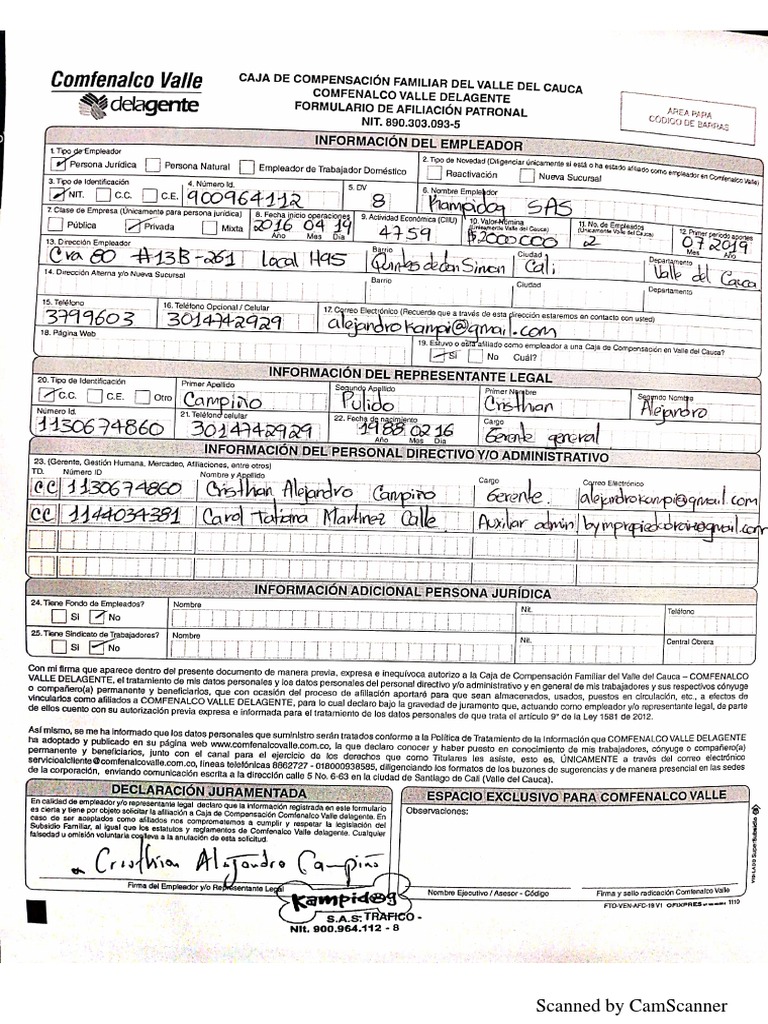 Comfenalco Valle
delagente
CAJA DE COMPENSACIÓN FAMILIAR DEL VALLE DEL CAUCA
COMFENALCO VALLE DELAGENTE
FORMULARIO DE AFILIACIÓN PATRONAL
NIT. 890.303.093-5
AREA PARA
CÓDIGO DE BARRAS
INFORMACIÓN DEL EMPLEADOR
1. Tipo de Empleador
Persona Jurídica Persona Natural Empleador de Trabajador Doméstico
2. Tipo de Novedad (Diligenciar únicamente si está o ha estado afiliado como empleador en Comfenalco Valle)
Reactivación Nueva Sucursal
3. Tipo de Identificación
NIT. C.C. C.E.
4. Número Id.
900964112
5. DV
8
6. Nombre Empleador
Kampidog SAS
7. Clase de Empresa (Únicamente para persona jurídica)
Pública Privada Mixta
8. Fecha inicio operaciones
2016 04 19
Año Mes Día
9. Actividad Económica (CIIU)
4759
10. Valor Nómina
(Únicamente Valle del Cauca)
$2000000
11. No. de Empleados
(Únicamente Valle del Cauca)
2
12. Primer periodo aportes
07 2019
Mes Año
13. Dirección Empleador
Cra 80 #13B-261 local H95
Barrio
Quintas de don Simon
Ciudad
Cali
Departamento
Valle del Cauca
14. Dirección Alterna y/o Nueva Sucursal
Barrio
Ciudad
Departamento
15. Teléfono
3799603
16. Teléfono Opcional / Celular
3014742929
17. Correo Electrónico (Recuerde que a través de esta dirección estaremos en contacto con usted)
alejandrokampi@gmail.com
18. Página Web
19. Estuvo o está afiliado como empleador a una Caja de Compensación en Valle del Cauca?
Si No Cuál?
INFORMACIÓN DEL REPRESENTANTE LEGAL
20. Tipo de Identificación
C.C. C.E. Otro
Primer Apellido
Campiño
Segundo Apellido
Pulido
Primer Nombre
Cristhian
Segundo Nombre
Alejandro
Número Id.
1130674860
21. Teléfono celular
3014742929
22. Fecha de nacimiento
1988 02 16
Año Mes Día
Cargo
Gerente general
INFORMACIÓN DEL PERSONAL DIRECTIVO Y/O ADMINISTRATIVO
23. (Gerente, Gestión Humana, Mercadeo, Afiliaciones, entre otros)
TD. Número ID Nombre y Apellido Cargo Correo Electrónico
CC 1130674860 Cristhian Alejandro Campiño Gerente. alejandrokampi@gmail.com
CC 1144034381 Carol Tatiana Martinez Calle Auxiliar admin
INFORMACIÓN ADICIONAL PERSONA JURÍDICA
24. Tiene Fondo de Empleados?
Si No
Nombre
Nit.
Teléfono
25. Tiene Sindicato de Trabajadores?
Si No
Nombre
Nit.
Central Obrera
Con mi firma que aparece dentro del presente documento de manera previa, expresa e inequívoca autorizo a la Caja de Compensación Familiar del Valle del Cauca – COMFENALCO
VALLE DELAGENTE, el tratamiento de mis datos personales y los datos personales del personal directivo y/o administrativo y en general de mis trabajadores y sus respectivos cónyuge
o compañero(a) permanente y beneficiarios, que con ocasión del proceso de afiliación aportaré para que sean almacenados, usados, puestos en circulación, etc., a efectos de
vincularlos como afiliados a COMFENALCO VALLE DELAGENTE, para lo cual declaro bajo la gravedad de juramento que, actuando como empleador y/o representante legal, de parte
de ellos cuento con su autorización previa expresa e informada para el tratamiento de los datos personales de que trata el artículo 9° de la Ley 1581 de 2012.
Así mismo, se me ha informado que los datos personales que suministro serán tratados conforme a la Política de Tratamiento de la Información que COMFENALCO VALLE DELAGENTE
ha adoptado y publicado en su página web www.comfenalcovalle.com.co, la que declaro conocer y haber puesto en conocimiento de mis trabajadores, cónyuge o compañero(a)
permanente y beneficiarios, junto con el canal para el ejercicio de los derechos que como Titulares les asiste, esto es, ÚNICAMENTE a través del correo electrónico
servicioalcliente@comfenalcovalle.com.co, líneas telefónicas 8862727 - 018000938585, diligenciando los formatos de los buzones de sugerencias y de manera presencial en las sedes
de la corporación, enviando comunicación escrita a la dirección calle 5 No. 6-63 en la ciudad de Santiago de Cali (Valle del Cauca).
DECLARACIÓN JURAMENTADA
En calidad de empleador y/o representante legal declaro que la información registrada en este formulario
es cierta y tiene por objeto solicitar la afiliación a Caja de Compensación Comfenalco Valle delagente. En
caso de ser aceptados como afiliados nos comprometemos a cumplir y respetar la legislación del
Subsidio Familiar, al igual que los estatutos y reglamentos de Comfenalco Valle delagente. Cualquier
falsedad u omisión voluntaria conlleva a la anulación de esta solicitud.
Cristhian Alejandro Campiño
Firma del Empleador y/o Representante Legal
Kampidog
S.A.S. TRAFICO -
Nit. 900.964.112 - 8
ESPACIO EXCLUSIVO PARA COMFENALCO VALLE
Observaciones:
Nombre Ejecutivo / Asesor - Código
Firma y sello radicación Comfenalco Valle
FTO-VEN-AFC-19 V1
1110
Scanned by CamScanner